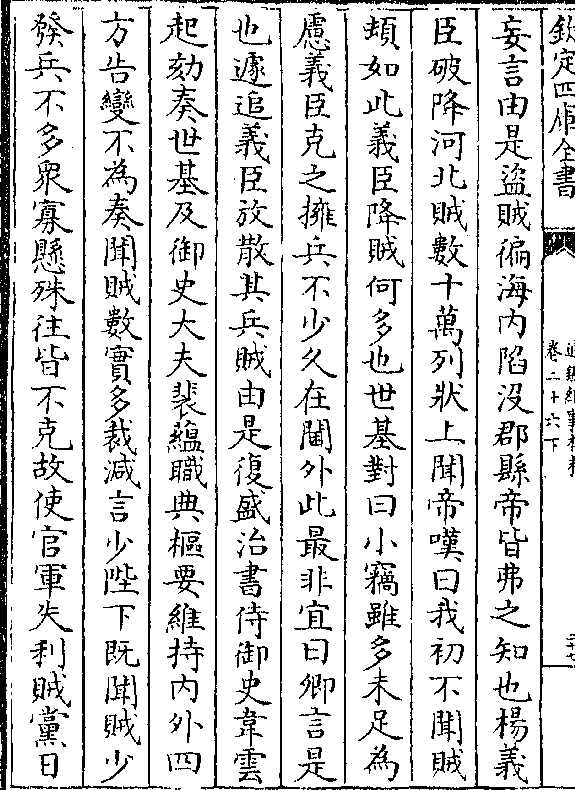 欽定四庫全書
通鑑紀事本末
卷二十六下
二十七
妄言由是盜賊徧海内陷没郡縣帝皆弗之知也楊義
臣破降河北賊數十萬列狀上聞帝嘆曰我初不聞賊
頓如此義臣降賊何多也世基對曰小竊雖多未足為
慮義臣克之擁兵不少久在閫外此最非宜曰卿言是
也遽追義臣放散其兵賊由是復盛治書侍御史韋雲
起劾奏世基及御史大夫裴藴職典樞要維持内外四
方告變不為奏聞賊數實多裁減言少陛下既聞賊少
發兵不多衆寡懸殊往皆不克故使官軍失利賊黨日